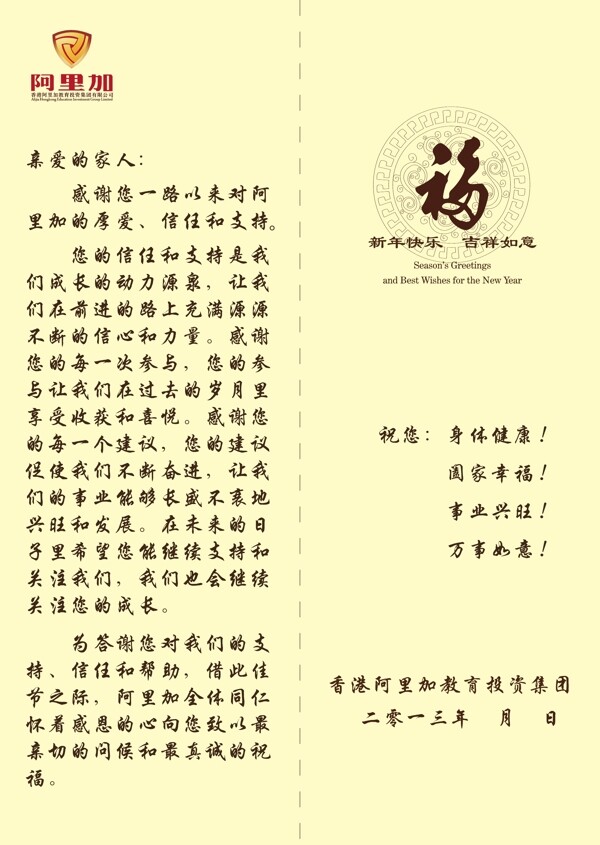 阿里加
香港阿里加教育投资集团有限公司
Alijia Hongkong Education Investment Group Limited
亲爱的家人：
感谢您一路以来对阿
里加的厚爱、信任和支持。
您的信任和支持是我
们成长的动力源泉，让我
们在前进的路上充满源源
不断的信心和力量。感谢
您的每一次参与，您的参
与让我们在过去的岁月里
享受收获和喜悦。感谢您
的每一个建议，您的建议
促使我们不断奋进，让我
们的事业能够长盛不衰地
兴旺和发展。在未来的日
子里希望您能继续支持和
关注我们，我们也会继续
关注您的成长。
为答谢您对我们的支
持、信任和帮助，借此佳
节之际，阿里加全体同仁
怀着感恩的心向您致以最
亲切的问候和最真诚的祝
福。
福
新年快乐 吉祥如意
Season's Greetings
and Best Wishes for the New Year
祝您：身体健康！
阖家幸福！
事业兴旺！
万事如意！
香港阿里加教育投资集团
二零一三年 月 日